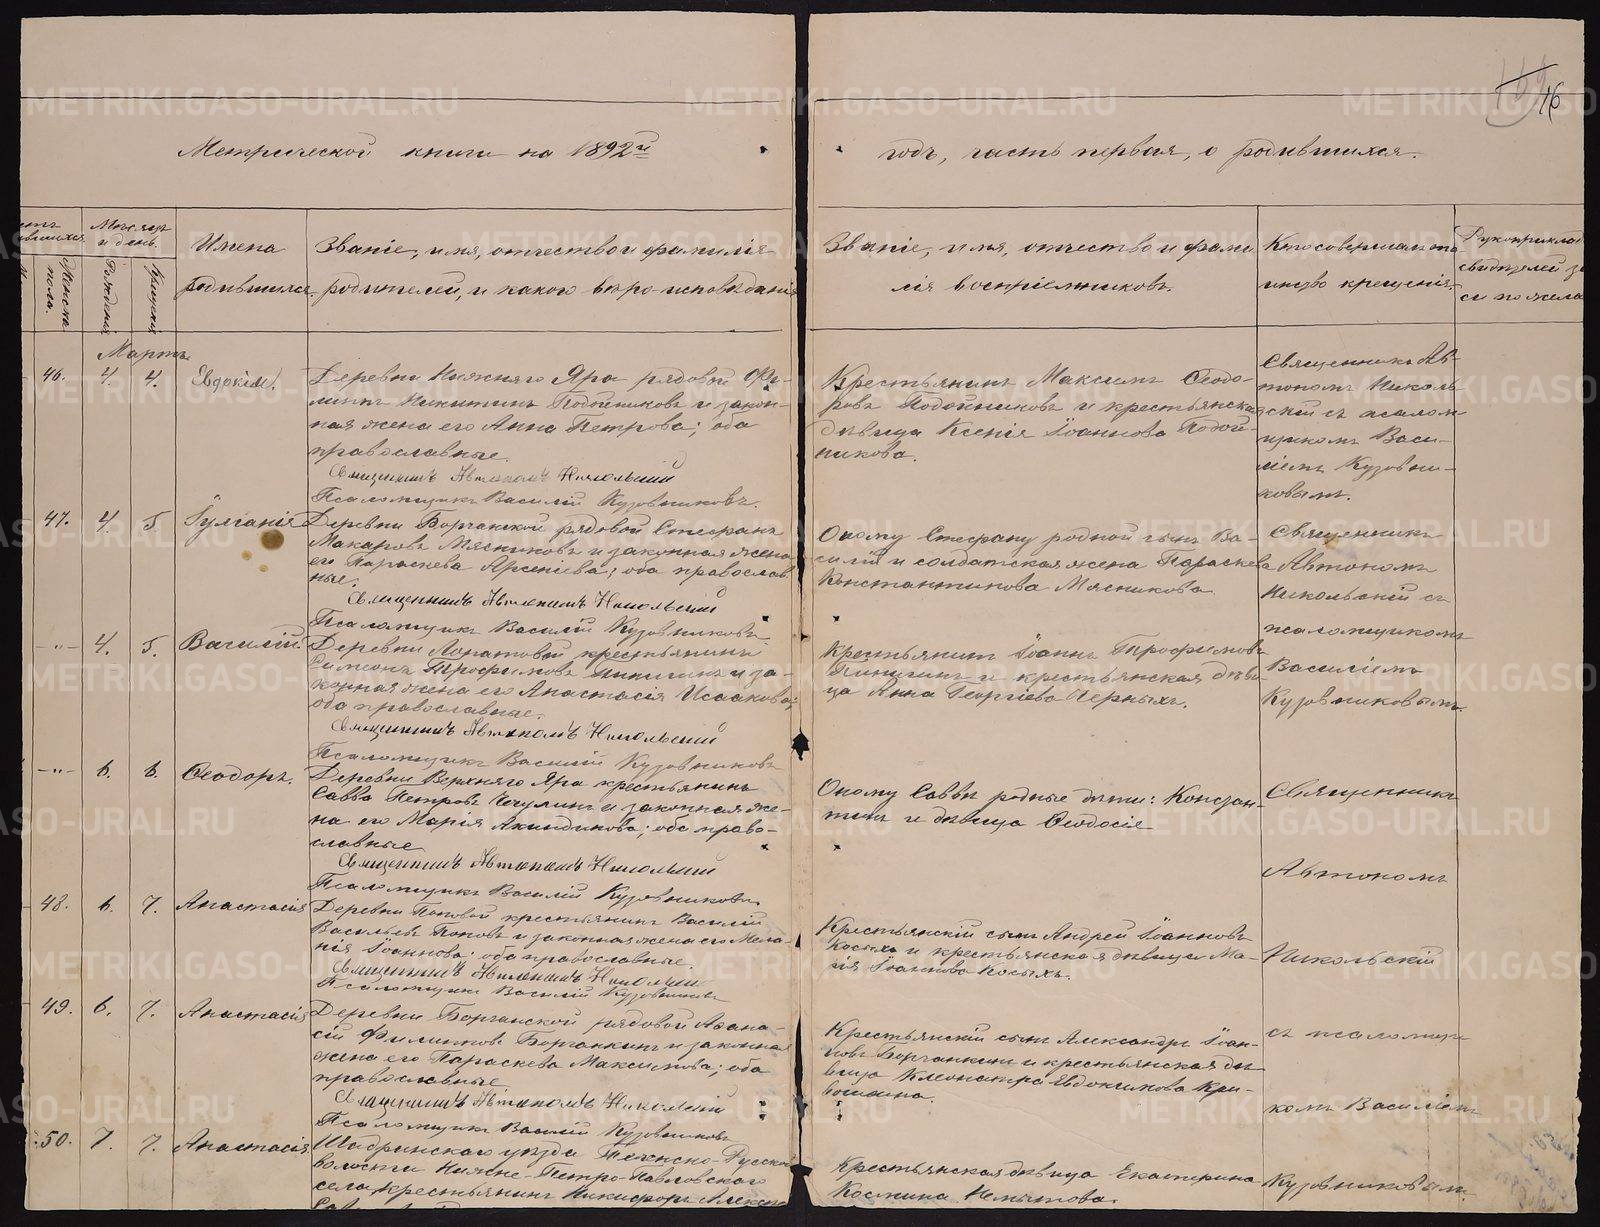 16
Метрической книги на 1892й
годъ, часть первая, о родившихся.
Мѣсяцъ и день.
Женска пола.
Рожденія
Крещенія
Имена
родившихся.
Званіе, имя, отчество и фамилія
родителей, и какого вѣроисповѣданія
Званіе, имя, отчество и фами
лія воспріемниковъ.
Кто совершалъ та
инство крещенія.
Рукоприклад
свидѣтелей за
си по жела
Мартъ
46. 4. 4. Евдокія.
Деревни Нижняго Яра рядовой Фи-
липпъ Никитинъ Подойниковъ и закон-
ная жена его Анна Петрова; оба
православные.
Священникъ Автономъ Никольскій
Псаломщикъ Василій Кузовниковъ.
Крестьянинъ Максимъ Ѳеодо-
ровъ Подойниковъ и крестьянская
дѣвица Ксенія Іоаннова Подой-
никова.
Священникъ Ав-
тономъ Николь-
скій съ псалом-
щикомъ Васи-
ліемъ Кузовни-
ковымъ.
47. 4. 5. Іуліанія
Деревни Борчанской рядовой Стефанъ
Макаровъ Мясниковъ и законная жена
его Параскева Арсеніева; оба православ
ные.
Священникъ Автономъ Никольскій
Псаломщикъ Василій Кузовниковъ
Оному Стефану родной сынъ Ва-
силій и солдатская жена Параскева
Константинова Мясникова
Священникъ
Автономъ
Никольскій съ
псаломщикомъ
Василіемъ
Кузовниковымъ.
-"- 4. 5. Василій.
Деревни Лопатовой крестьянинъ
Симеонъ Трофимовъ и за-
конная жена его Анастасія Исаакова;
оба православные.
Священникъ Автономъ Никольскій
Псаломщикъ Василій Кузовниковъ
Крестьянинъ Іоаннъ Трофимовъ
и крестьянская дѣви-
ца Анна Георгіева Черныхъ.
-"- 6. 6. Ѳеодоръ.
Деревни Верхняго Яра крестьянинъ
Савва Петровъ и законная же-
на его Марія Акиндинова; оба право-
славные
Священникъ Автономъ Никольскій
Псаломщикъ Василій Кузовниковъ
Оному Саввѣ родные дѣти: Констан-
тинъ и дѣвица Ѳеодосія
Священникъ
Автономъ
Никольскій
съ псаломщи
комъ Василіемъ
Кузовниковымъ.
48. 6. 7. Анастасія
Деревни Поповой крестьянинъ Василій
Васильевъ Поповъ и законная жена его Мела-
нія Іоаннова; оба православные.
Священникъ Автономъ Никольскій
Псаломщикъ Василій Кузовниковъ
Крестьянскій сынъ Андрей Іоанновъ
Косыхъ и крестьянская дѣвица Ма-
рія Іоаннова Косыхъ.
49. 6. 7. Анастасія
Деревни Борчанской рядовой Аѳана-
сій Филипповъ Борчанкинъ и законная
жена его Параскева Максимова; оба
православные
Священникъ Автономъ Никольскій
Псаломщикъ Василій Кузовниковъ
Крестьянскій сынъ Александръ Іоан-
новъ Борчанкинъ и крестьянская дѣ-
вица Клеопатра Евдокимова Кри-
вошеина.
50. 7. 7. Анастасія
Шадринскаго уѣзда Теченско-Русской
волости Нижне-Петро-Павловскаго
села крестьянинъ Никифоръ Алекса
Крестьянская дѣвица Екатерина
Космина Немытова.
METRIKI.GASO-URAL.RU